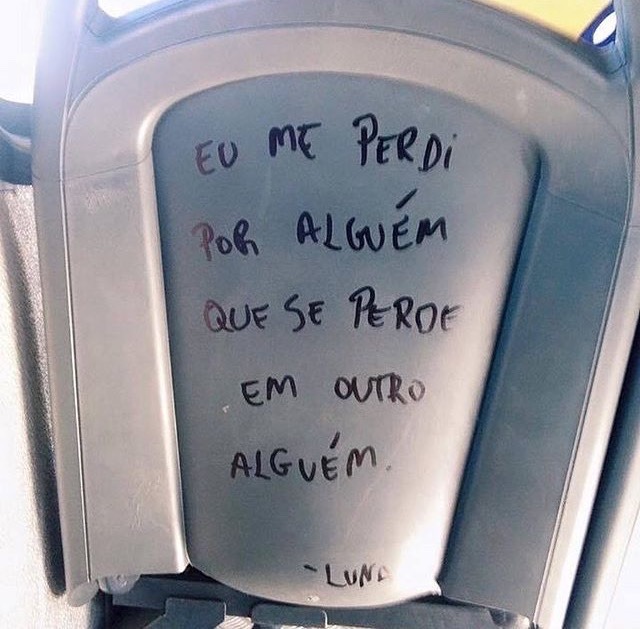 EU ME PERDI
POR ALGUÉM
QUE SE PERDE
EM OUTRO
ALGUÉM.
- LUNA